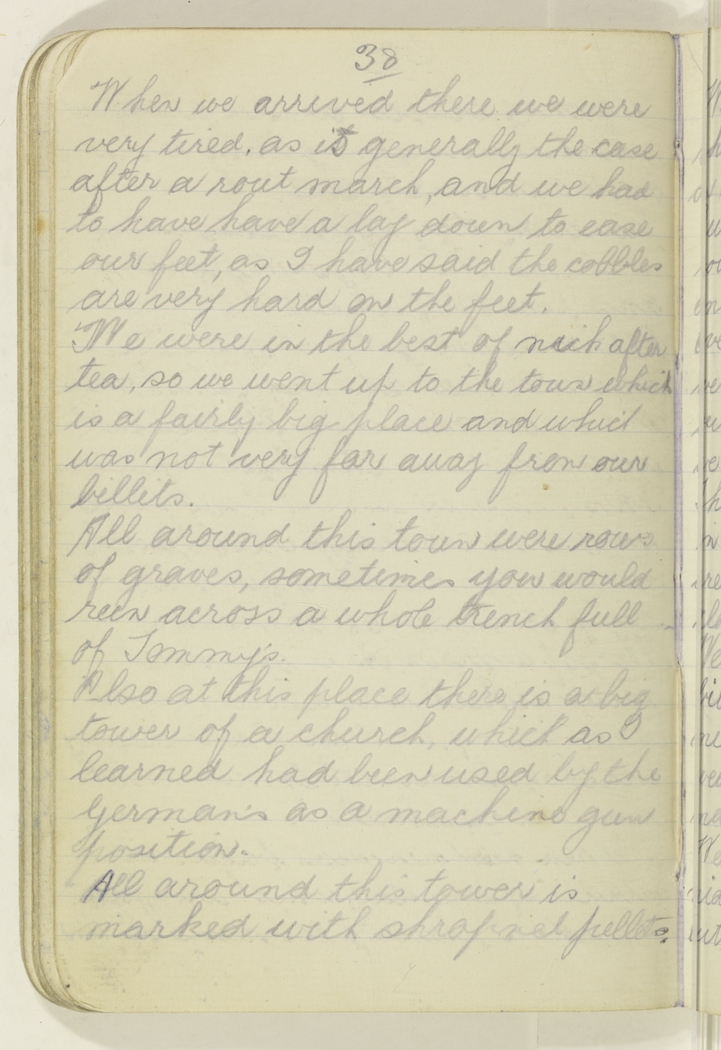 38
When we arrived there we were
very tired, as is generally the case
after a rout march, and we had
to have have a lay down to ease
our feet, as I have said the cobbles
are very hard on the feet.
We were in the best of nick after
tea, so we went up to the town which
is a fairly big place and which
was not very far away from our
billits.
All around this town were rows
of graves, sometimes you would
run across a whole trench full
of Tommy's.
Also at this place there is a big
tower of a church, which as I
learned had been used by the
German's as a machine gun
position.
All around this tower is
marked with shrapnel pellets.